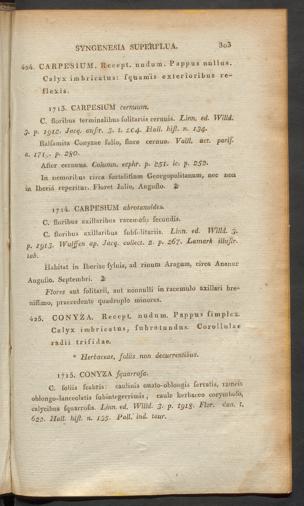 SYNGENESIA SUPERFLUA. 303
424. CARPESIUM. Recept. nudum. Pappus nullus.
Calyx imbricatus: squamis exterioribus reflexis.
1713. CARPESIUM cernuum.
C. floribus terminalibus solitariis cernuis. Linn. ed. Willd.
3. p. 1912. Jacq. austr. 3. t. 204. Hall. hist. n. 134.
Balsamita Conyzae folio, flore cernuo. Vaill. act. paris.
a. 1719. p. 280.
After cernuus. Column. ecphr. p. 251. ic. p. 252.
In nemoribus circa fortalitium Georgopolitanum, nec non
in Iberia reperitur. Floret Julio, Augusto. ♃
1714. CARPESIUM abrotanoides.
C. floribus axillaribus racemosis secundis.
C. floribus axillaribus subsolitariis. Linn. ed. Willd. 3.
p. 1913. Wulffen ap. Jacq. collect. 2. p. 267. Lamark illustr.
tab.
Habitat in Iberiae sylvis, ad rivum Aragum, circa Ananur
Augusto. Septembri. ♃
Flores aut solitarii, aut nonnulli in racemulo axillari brevissimo, praecedente quadruplo minores.
425. CONYZA. Recept. nudum. Pappus simplex.
Calyx imbricatus, subrotundus. Corollulae
radii trifidae.
* Herbaceae, foliis non decurrentibus.
1715. CONYZA squarrosa.
C. foliis scabris: caulinis ovato-oblongis serratis, rameis
oblongo-lanceolatis subintegerrimis, caule herbaceo corymboso,
calycibus squarrosis. Linn. ed. Willd. 3. p. 1918. Flor. dan. t.
622. Hall. hist. n. 135. Pall. ind. taur.